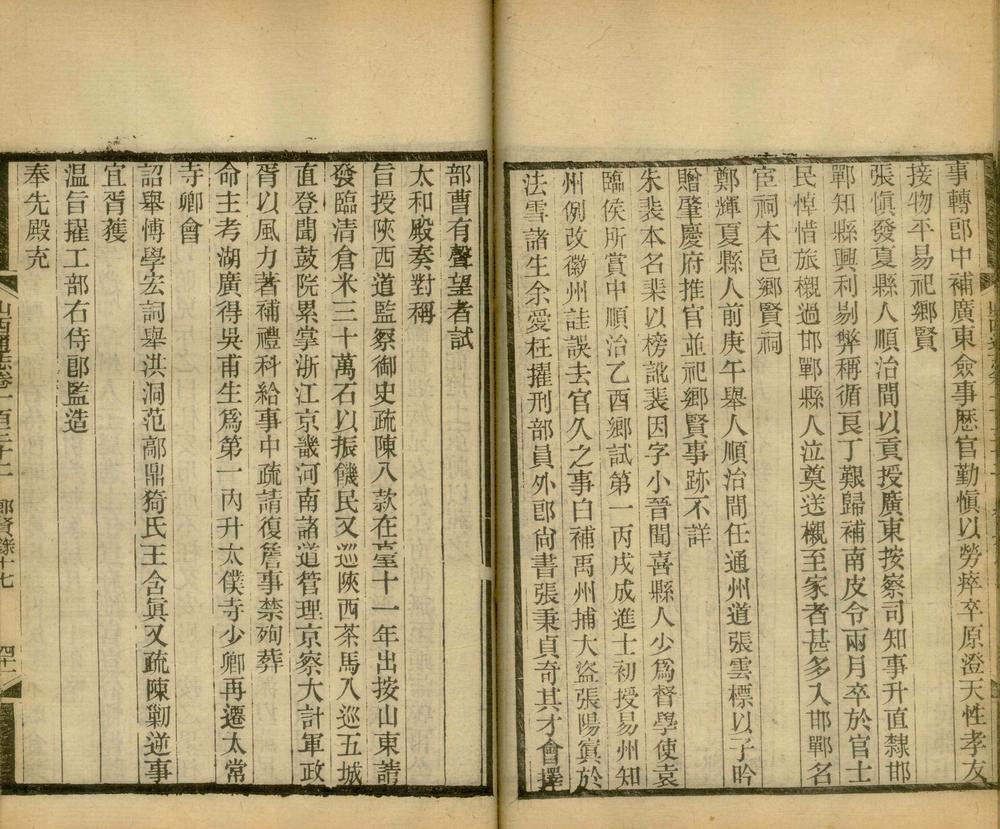 事轉郎中補廣東僉事歷官勤慎以勞瘁卒原澄天性孝友
接物平易祀鄉賢
張慎發夏縣人順治間以貢授廣東按察司知事升直隸邯
鄲知縣興利剔弊稱循良丁艱歸補南皮令兩月卒於官士
民悼惜旅櫬過邯鄲縣人泣奠送櫬至家者甚多入邯鄲名
宦祠本邑鄉賢祠
鄭輝夏縣人前庚午舉人順治間任通州道張雲標以子昑
贈肇慶府推官並祀鄉賢事跡不詳
朱裴本名棐以榜訛裴因字小晉聞喜縣人少爲督學使袁
臨侯所賞中順治乙酉鄉試第一丙戌成進士初授易州知
州例改徽州詿誤去官久之事白補禹州捕大盜張陽寘於
法雪諸生余愛枉擢刑部員外郎尚書張秉貞奇其才會擇
部曹有聲望者試
太和殿奏對稱
旨授陝西道監察御史疏陳八款在臺十一年出按山東請
發臨清倉米三十萬石以振饑民又巡陝西茶馬八巡五城
直登聞鼓院累掌浙江京畿河南諸道管理京察大計軍政
胥以風力著補禮科給事中疏請復詹事禁殉葬
命主考湖廣得吳甫生爲第一內升太僕寺少卿再遷太常
寺卿會
詔舉博學宏詞舉洪洞范鄗鼎猗氏王含眞又疏陳勦逆事
宜胥獲
温旨擢工部右侍郎監造
奉先殿充
山西通志卷一百三十二 鄉賢錄十七